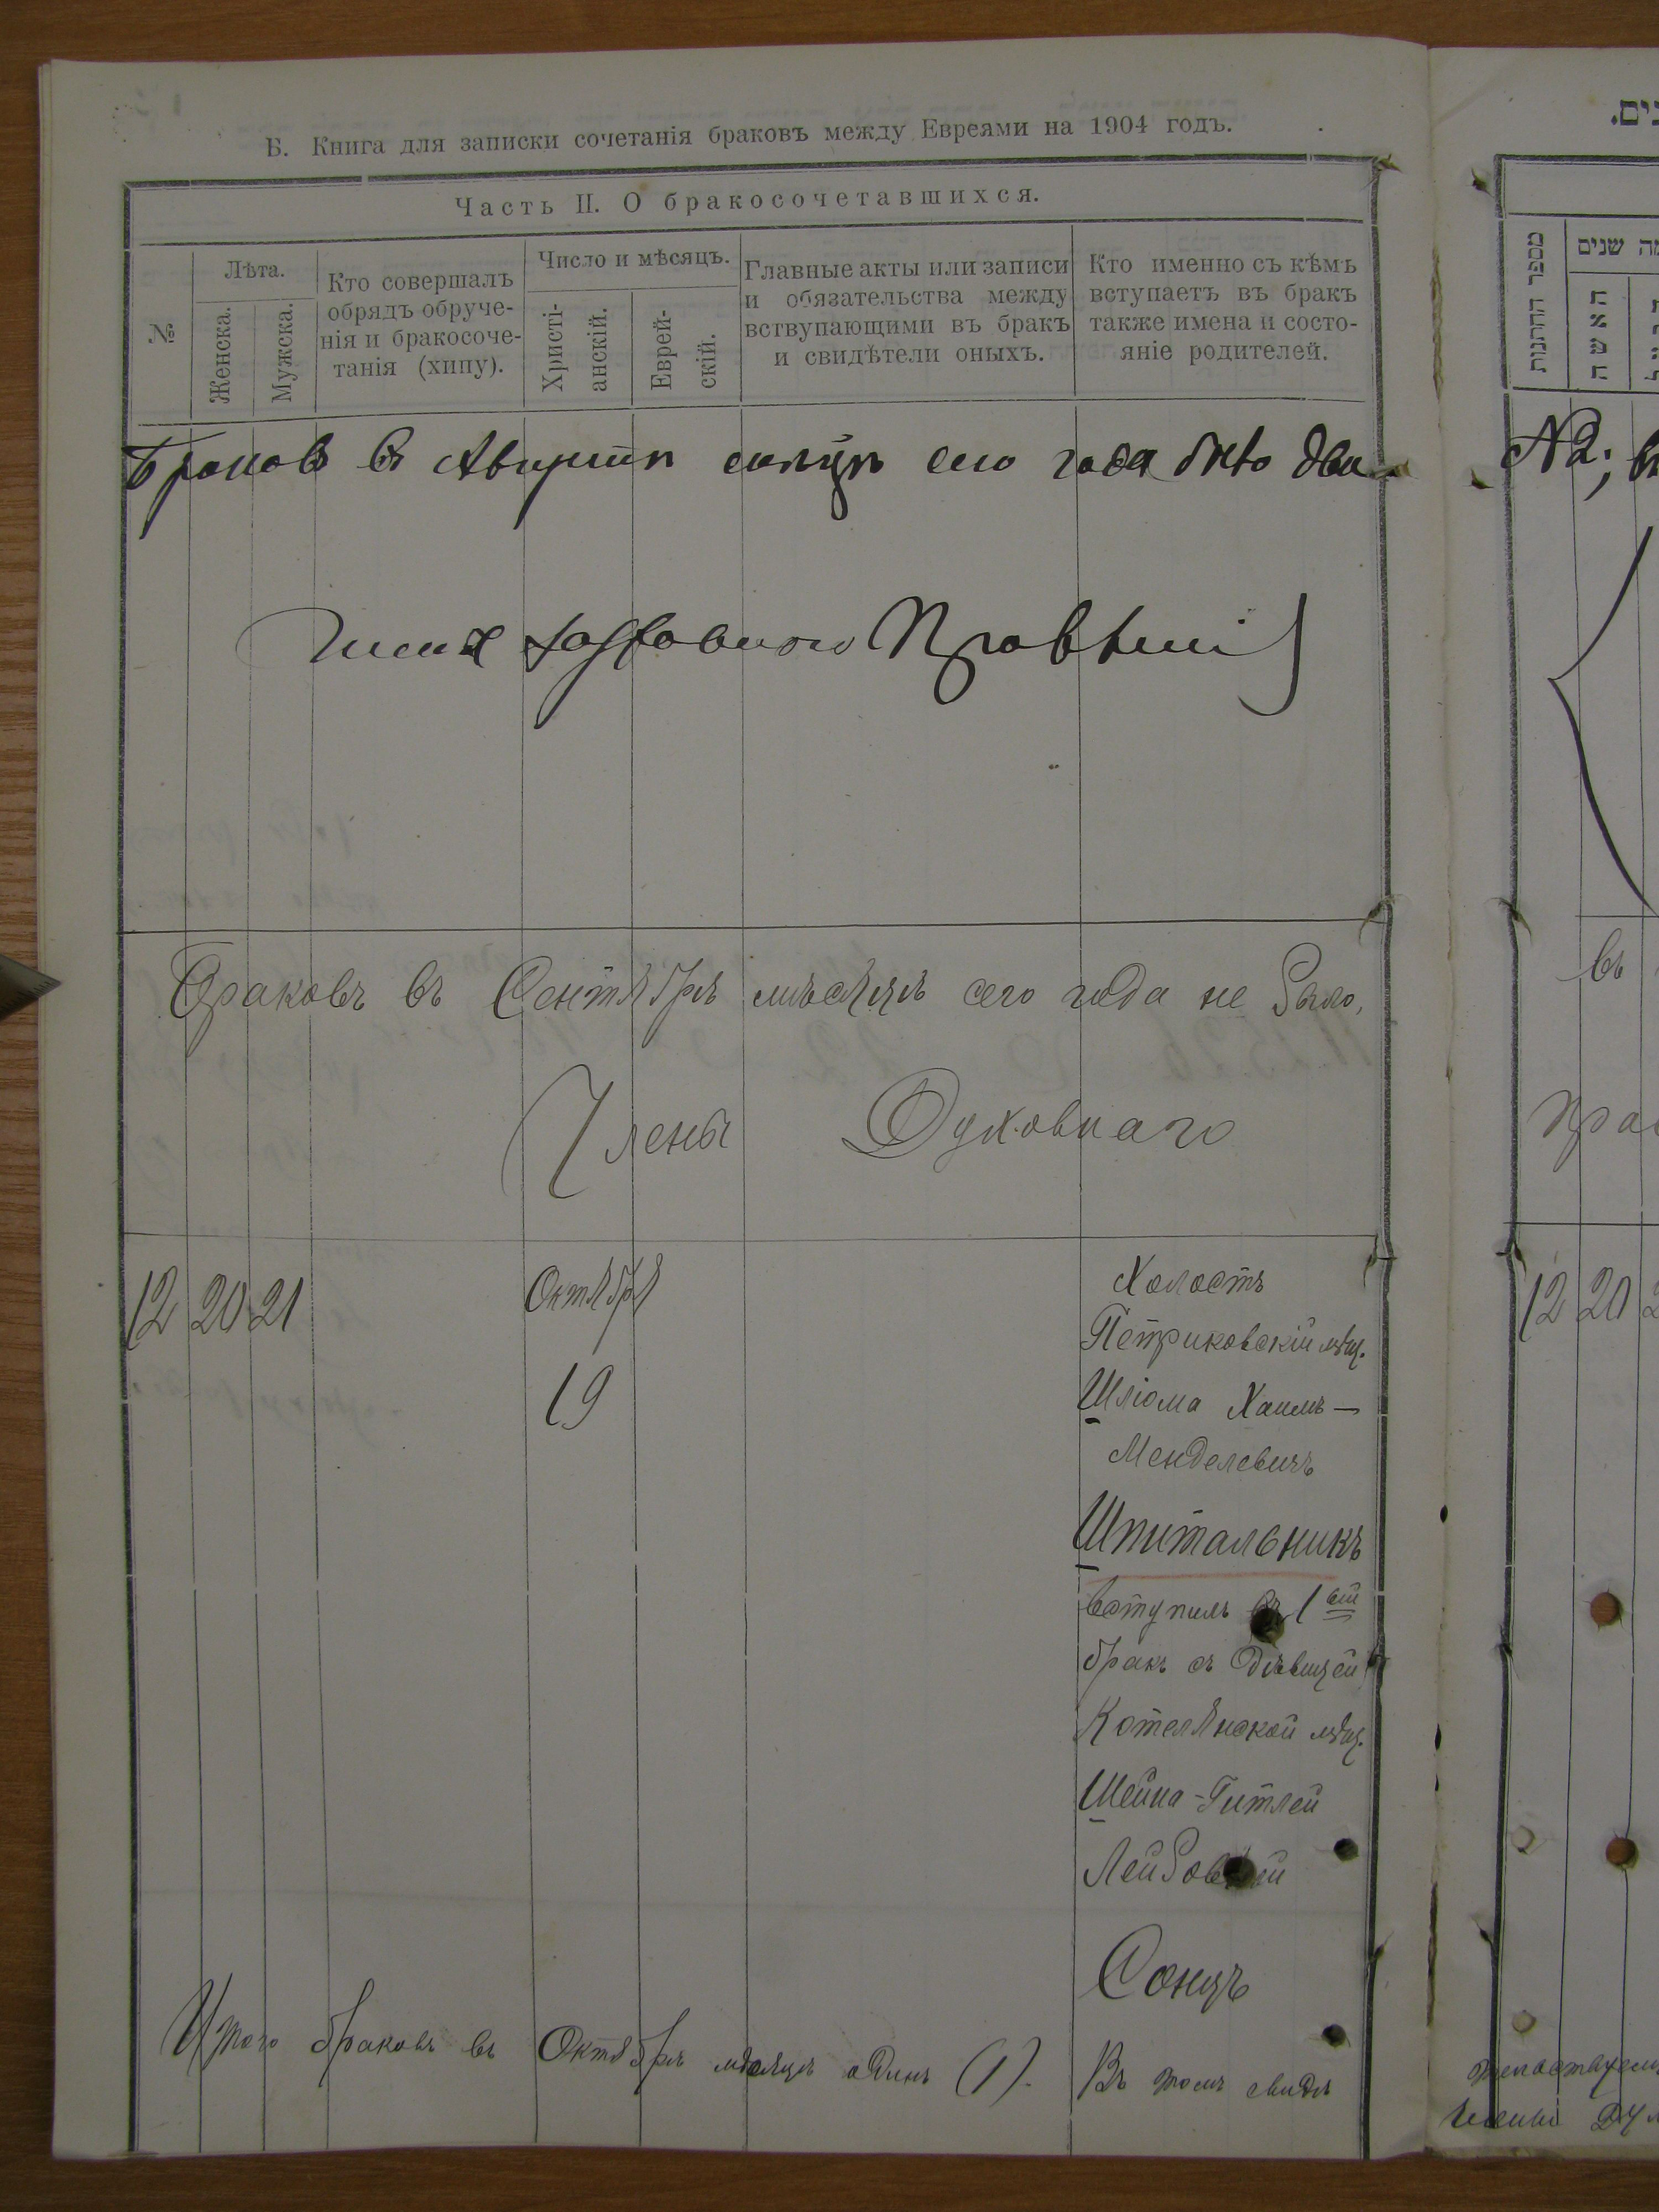 Б. Книга для записки сочетанія браковъ между Евреями на 1904 годъ.
Часть II. О бракосочетавшихся.
№
Лѣта.
Женска.
Мужска.
Кто совершалъ
обрядъ обруче-
нія и бракосоче-
танія (хипу).
Число и мѣсяцъ.
Христі-
анскій.
Еврей-
скій.
Главные акты или записи
и обязательства между
вствупающими въ бракъ
и свидѣтели оныхъ.
Кто именно съ кѣмъ
вступаетъ въ бракъ
также имена и состо-
яніе родителей.
Браковъ в Августѣ сего года было два
Браковъ въ Сентябрѣ мѣсяцѣ сего года не было,
Члены Духовнаго
12 20 21 Октября
19
Холостъ
Петриковскій мѣщ.
Шліома Хаимъ-
Менделевичъ
Шпитальникъ
вступилъ въ 1ый
бракъ съ дѣвицей
Котелянской мѣщ.
Шейна-Гитлей
Сонцъ
Итого браковъ въ Октябрѣ мѣсяцѣ одинъ (1). Въ томъ свидѣ
מספר החתנות
שנים
האשה
№2;
въ
12 20